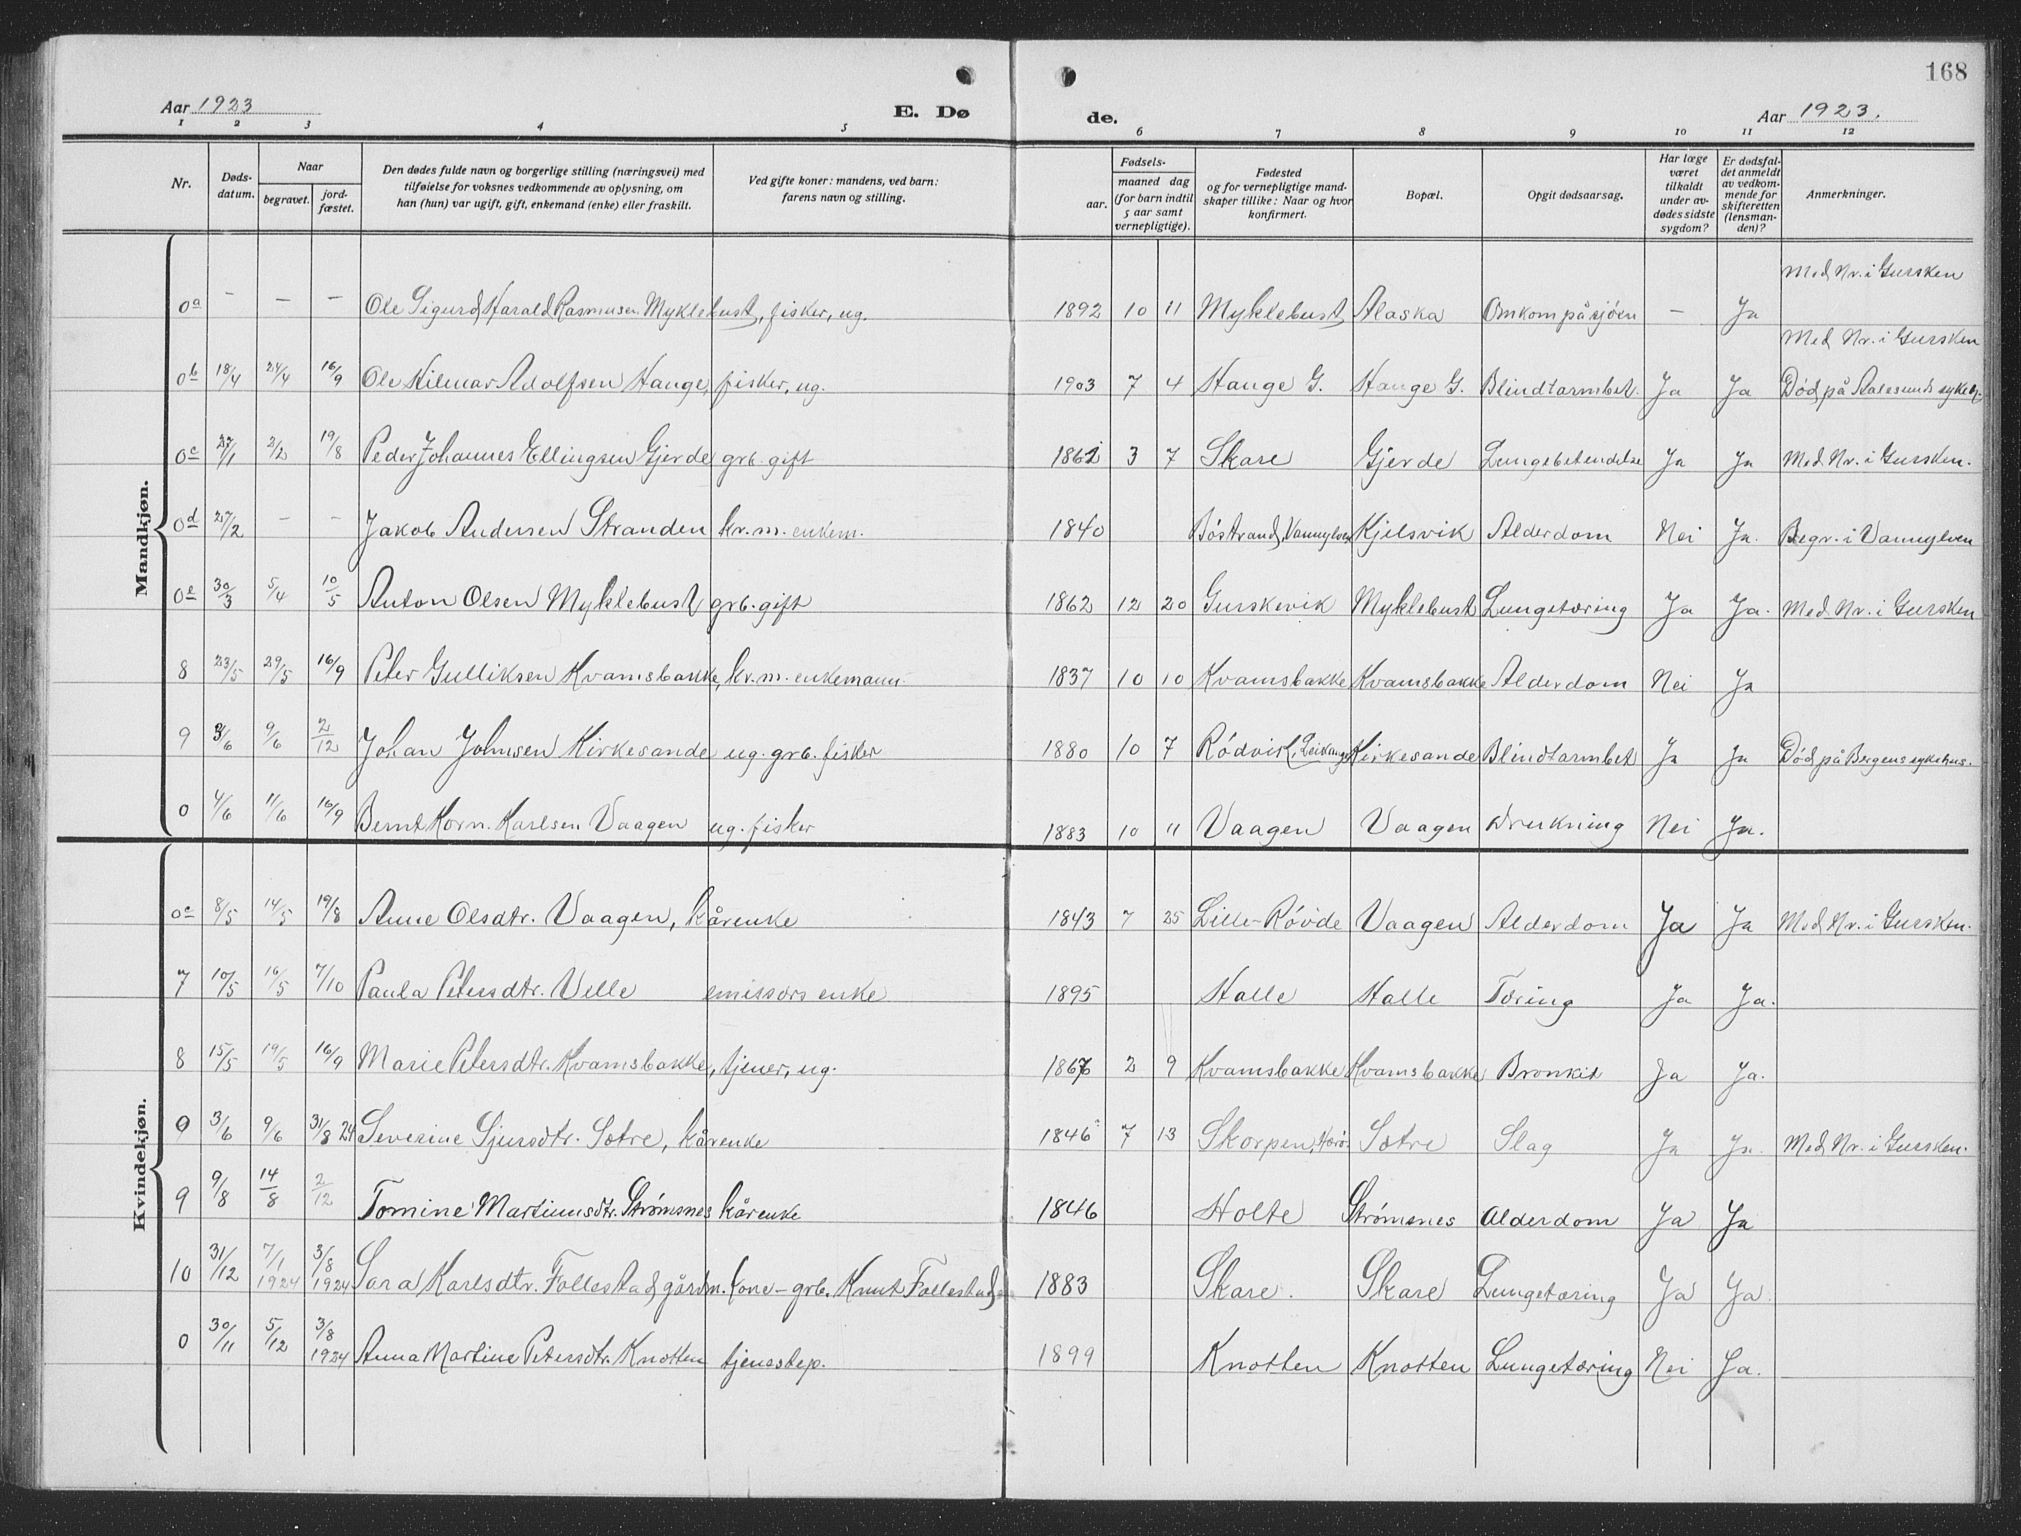 168
Aar 1923
E. Dø
de.
Aar 1923.
1 2 3 4 5 6 7 8 9 10 11 12
Nr.
Døds-
datum.
Naar
begravet.
jord-
fæstet.
Den dødes fulde navn og borgerlige stilling (næringsvei) med
tilføielse for voksnes vedkommende av oplysning, om
han (hun) var ugift, gift, enkemand (enke) eller fraskilt.
Ved gifte koner: mandens, ved barn:
farens navn og stilling.
Fødsels-
aar.
maaned dag
(for barn indtil
5 aar samt
vernepligtige).
Fødested
og for vernepligtige mand-
skaper tillike: Naar og hvor
konfirmert.
Bopæl.
Opgit dødsaarsag.
Har læge
været
tilkaldt
under av-
dødes sidste
sygdom?
Er dødsfal-
det anmeldt
av vedkom-
mende for
skifteretten
(lensman-
den)?
Anmerkninger.
Mandkjøn.
Med Nr. i Gursken
0a – – – Ole Sigurd Harald Rasmusen Myklebust, fisker, ug. 1892 10 11 Myklebust Alaska Omkom på sjøen – Ja
Med Nr. i Gursken
0b 18/4 24/4 16/9 Ole Hilmar Adolfsen Hauge, fisker, ug. 1903 7 4 Hauge G. Hauge G. Blindtarmbet. Ja Ja Død på Aalesunds sykeh.
0c 27/1 2/2 19/8 Peder Johannes Ellingsen Gjerde grb. gift 1862 3 7 Skare Gjerde Lungebetendelse Ja Ja Med Nr. i Gursken.
0d 27/2 – – Jakob Andersen Stranden kr. m. enkem. 1840 Böstrand, Vannylven Kjelsvik Alderdom Nei Ja. Begr. i Vannylven
0e 30/3 5/4 10/5 Anton Olsen Myklebust grb. gift 1862 12 20 Gurskevik Myklebust Lungetæring Ja Ja. Med Nr. i Gursken
8 23/5 29/5 16/9 Peter Gulliksen Kvamsbakke, kr. m. enkemann. 1837 10 10 Kvamsbakke Kvamsbakke Alderdom Nei Ja
9 3/6 9/6 2/12 Johan Johnsen Kirkesande ug. grb. fisker 1880 10 7 Rödvik, Leikanger Kirkesande Blindtarmbet Ja Ja Død på Bergens sykehus.
0 4/6 11/6 16/9 Bernt Korn. Karlsen Vaagen ug. fisker 1883 10 11 Vaagen Vaagen Drukning Nei Ja.
Kvindekjøn.
0c 8/5 14/5 19/8 Anne Olsdtr. Vaagen, kårenke 1843 7 25 Lille-Rövde Vaagen Alderdom Ja Ja Med Nr. i Gursken.
7 10/5 16/5 7/10 Paula Petersdtr. Velle emissörs enke 1895 Halle Halle Tæring Ja Ja.
8 15/5 19/5 16/9 Marie Petersdtr. Kvamsbakke, tjener, ug. 1867 2 9 Kvamsbakke Kvamsbakke Bronkit Ja Ja.
9 3/6 9/6 31/8 24 Severine Sjursdtr. Sætre, kårenke 1846 7 13 Skorpen, Herö. Sætre Slag Ja Ja. Med Nr. i Gursken.
9 9/8 14/8 2/12 Tomine Martinusdtr. Strømsnes kårenke 1846 Holte Strømsnes Alderdom Ja Ja
10 31/12 7/1 1924 3/8 1924 Sara Karlsdtr. Follestad gårdm. kone – grb. Knut Follestad 1883 Skare. Skare Lungetæring Ja Ja
0 30/11 5/12 3/8 1924 Anna Martine Petersdtr. Knotten tjenestep. 1899 Knotten Knotten Lungetæring Nei Ja.